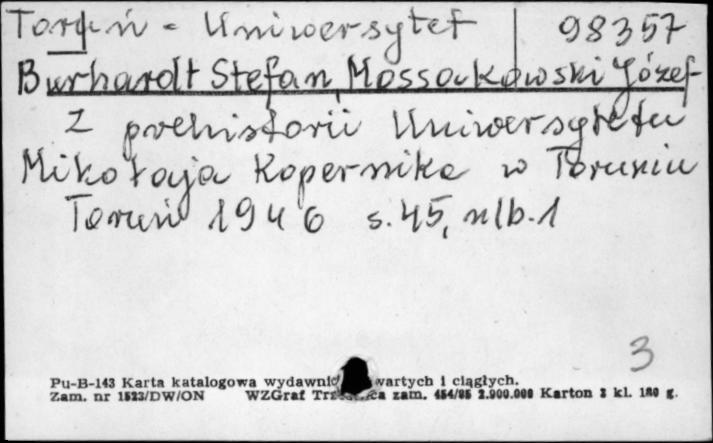 Toruń - Uniwersytet 98357
Burhardt Stefan, Mossakowski Józef
Z prehistorii Uniwersytetu
Mikołaja Kopernika w Toruniu
Toruń 1946 s. 45, nlb. 1
3
Pu-B-143 Karta katalogowa wydawnic wartych i ciągłych.
Zam. nr 1523/DW/ON WZGraf zam. 454/85 2.900.000 Karton 3 kl. 180 g.